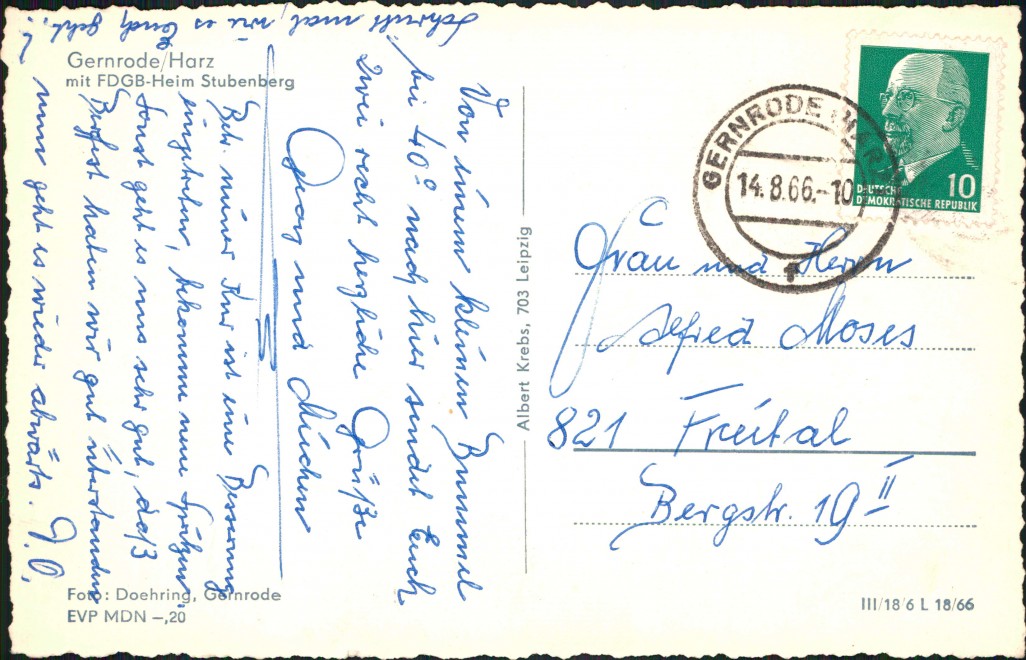 Gernrode/Harz
mit FDGB-Heim Stubenberg
Von einem kleinen Bummel
bei 40° nach hier sendet Euch
zwei recht herzliche Grüße
Georg und
Betr. meiner Kur ist eine Besserung
eingetreten, bekomme neue Spritzen,
sonst geht es uns sehr gut, daß
Bergfest haben wir gut überstanden
nun geht es wieder abwärts. D.O.
Schreibt mal, wie es Euch geht.!
Foto: Doehring, Gernrode
EVP MDN –,20
Albert Krebs, 703 Leipzig
GERNRODE (HARZ)
14.8.66.-10
DEUTSCHE
DEMOKRATISCHE REPUBLIK
10
Frau und Herrn
Alfred Moses
821 Freital
Bergstr. 19 II
III/18/6 L 18/66